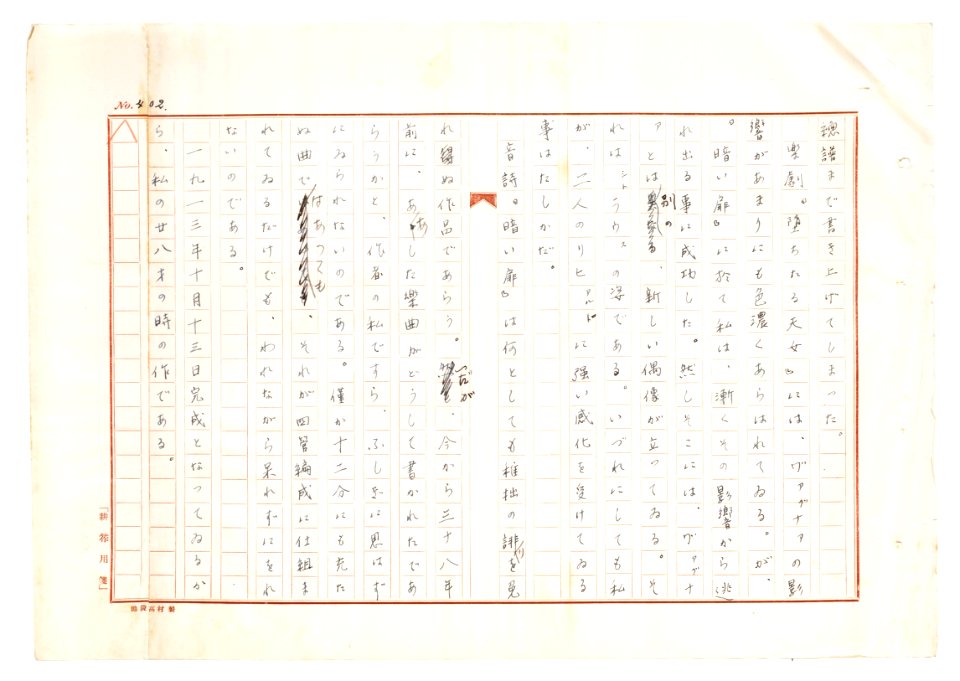 No. 402.
總譜まで書き上げてしまった。
樂劇『堕ちたる天女』には、ヴァグナァの影
響があまりにも色濃くあらはれてゐる。が、
『暗い扉』に於て私は、漸くその影響から逃
れ出る事に成功した。然しそこには、ヴァグナ
ァとは別の、新しい偶像が立ってゐる。そ
れはシトラウスの姿である。いづれにしても私
が、二人のリヒアルドに强い感化を受けてゐる
事はたしかだ。
音詩『暗い扉』は何としても稚拙の誹りを免
れ得ぬ作品であらう。だが、今から三十八年
前に、あゝした樂曲がどうして書かれたであ
らうかと、作者の私ですら、ふしぎに思はず
にゐられないのである。僅か十二分にも充た
ぬ曲ではあっても、それが四管編成に仕組ま
れてゐるだけでも、われながら呆れずにをれ
ないのである。
一九一三年十月十三日完成となってゐるか
ら、私の廿八才の時の作である。
「耕筰用箋」